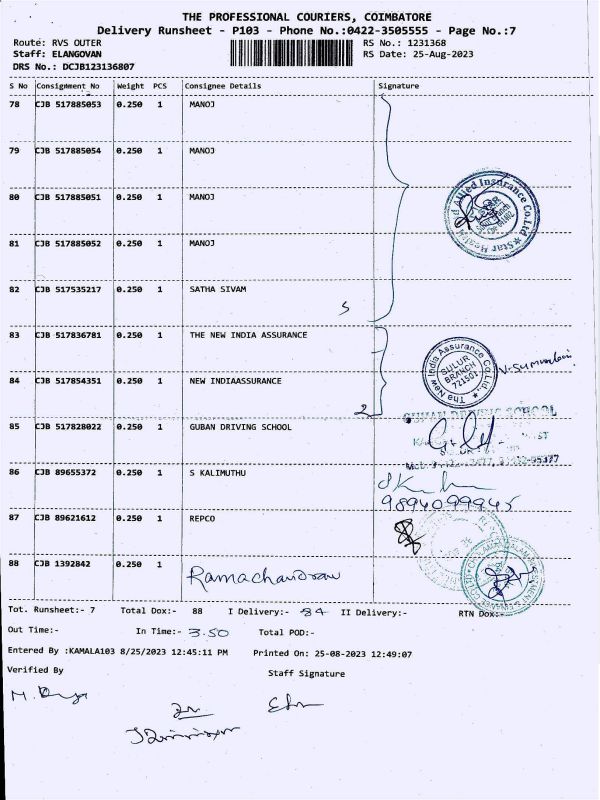 THE PROFESSIONAL COURIERS, COIMBATORE
Delivery Runsheet - P103 - Phone No.:0422-3505555 - Page No.:7
Route: RVS OUTER RS No.: 1231368
Staff: ELANGOVAN RS Date: 25-Aug-2023
DRS No.: DCJB123136807
S No Consignment No Weight PCS Consignee Details Signature
78 CJB 517885053 0.250 1 MANOJ
79 CJB 517885054 0.250 1 MANOJ
80 CJB 517885051 0.250 1 MANOJ
Allied Insurance Co.Ltd ★ Star Health
81 CJB 517885052 0.250 1 MANOJ
82 CJB 517535217 0.250 1 SATHA SIVAM
5
83 CJB 517836781 0.250 1 THE NEW INDIA ASSURANCE
The New India Assurance Co.Ltd.
SULUR
BRANCH
721501
84 CJB 517854351 0.250 1 NEW INDIAASSURANCE
2
GUBAN DRIVING SCHOOL
85 CJB 517828022 0.250 1 GUBAN DRIVING SCHOOL
86 CJB 89655372 0.250 1 S KALIMUTHU
9894099945
87 CJB 89621612 0.250 1 REPCO
88 CJB 1392842 0.250 1 Ramachandran
Tot. Runsheet:- 7 Total Dox:- 88 I Delivery:- 84 II Delivery:- RTN Dox:-
Out Time:- In Time:- 3.50 Total POD:-
Entered By :KAMALA103 8/25/2023 12:45:11 PM Printed On: 25-08-2023 12:49:07
Verified By Staff Signature